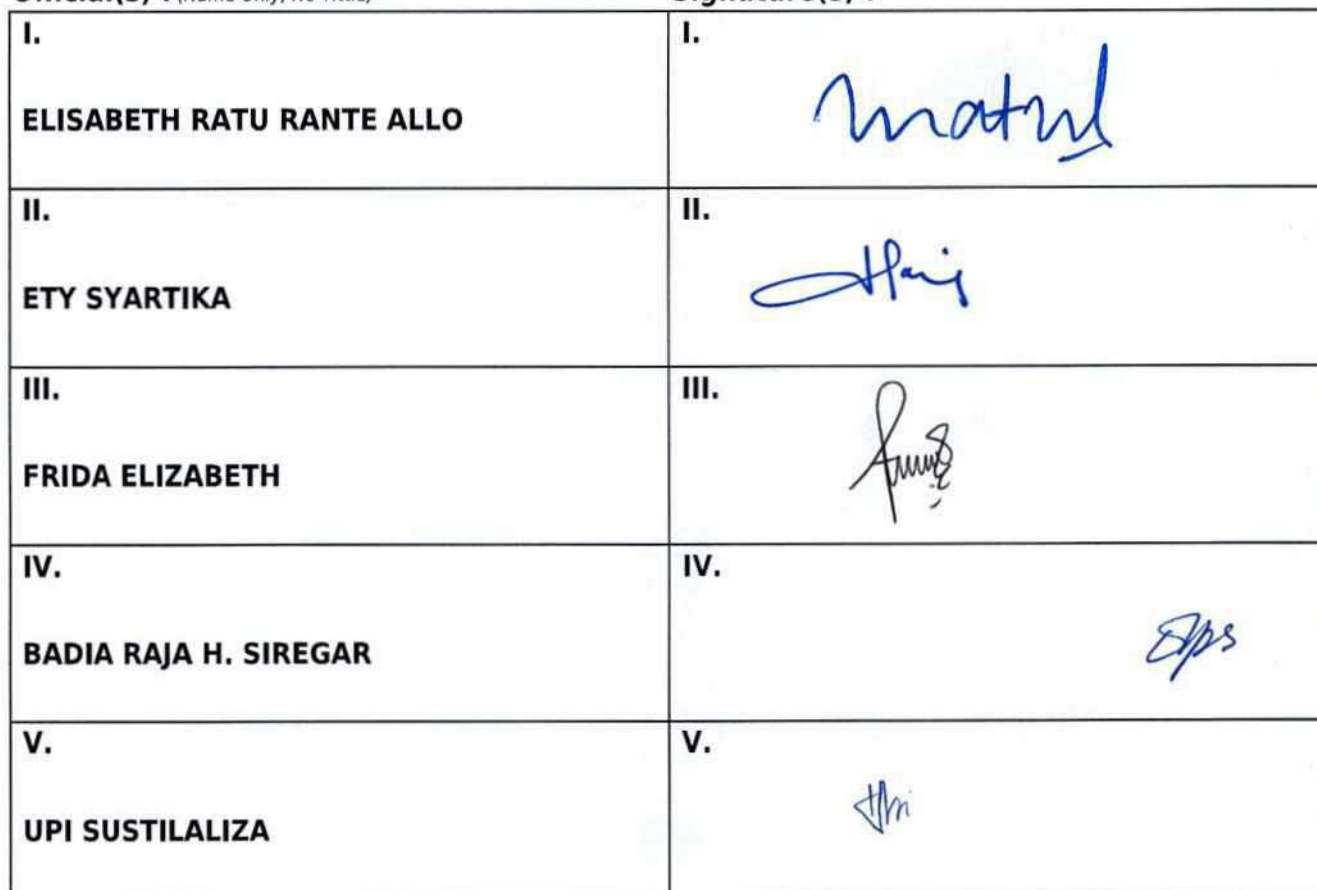 I.
I.
ELISABETH RATU RANTE ALLO
II.
II.
ETY SYARTIKA
III.
III.
FRIDA ELIZABETH
IV.
IV.
BADIA RAJA H. SIREGAR
V.
V.
UPI SUSTILALIZA